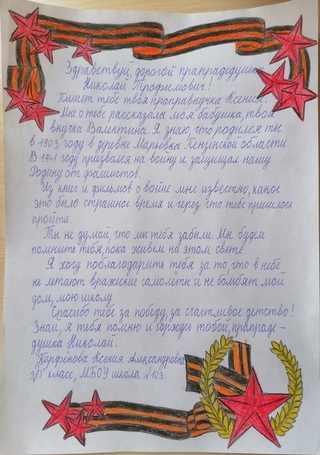 Здравствуй, дорогой прапрадедушка
Николай Трофимович!
Пишет тебе твоя праправнучка Ксения.
Мне о тебе рассказала моя бабушка, твоя
внучка Валентина. Я знаю, что родился ты
в 1903 году в деревне Марьевка Пензенской области.
В 1941 году призвался на войну и защищал нашу
Родину от фашистов.
Из книг и фильмов о войне мне известно, какое
это было страшное время и через что тебе пришлось
пройти.
Ты не думай что мы тебя забыли. Мы будем
помнить тебя, пока живем на этом свете.
Я хочу поблагодарить тебя за то, что в небе
не летают вражеские самолёты и не бомбят мой
дом, мою школу.
Спасибо тебе за победу, за счастливое детство!
Знай, я тебя помню и горжусь тобой, прапраде-
душка Николай.
Парфёнова Ксения Александровна
3"В" класс, МБОУ школа №103